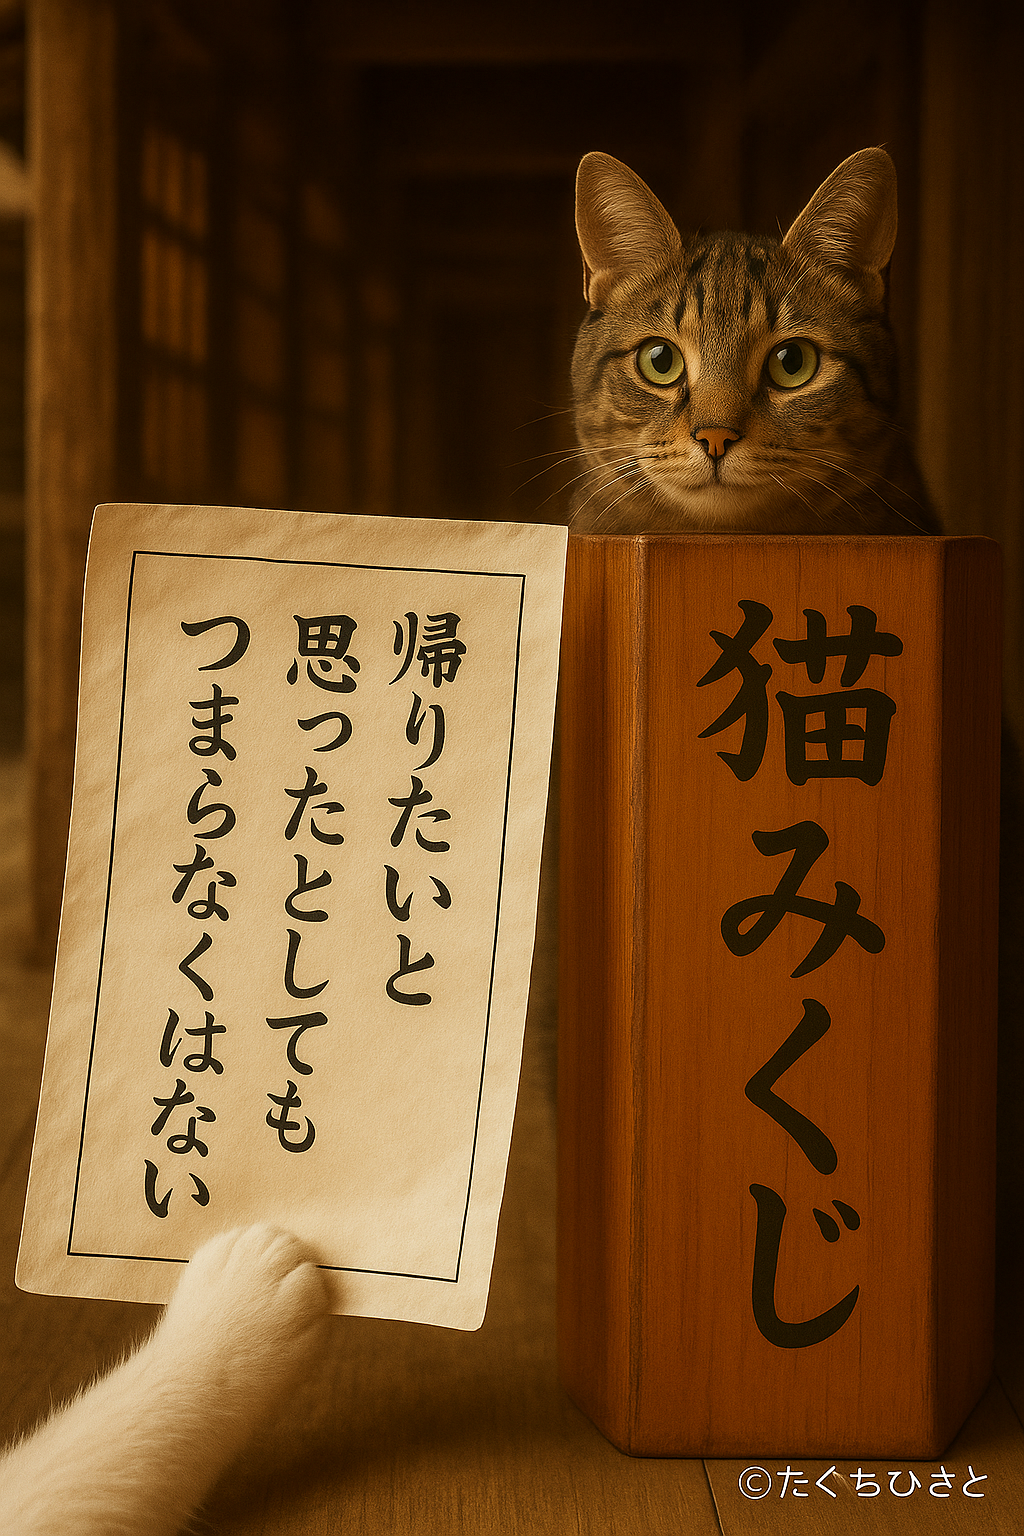 帰りたいと
思ったとしても
つまらなくはない
猫みくじ
©たくちひさと